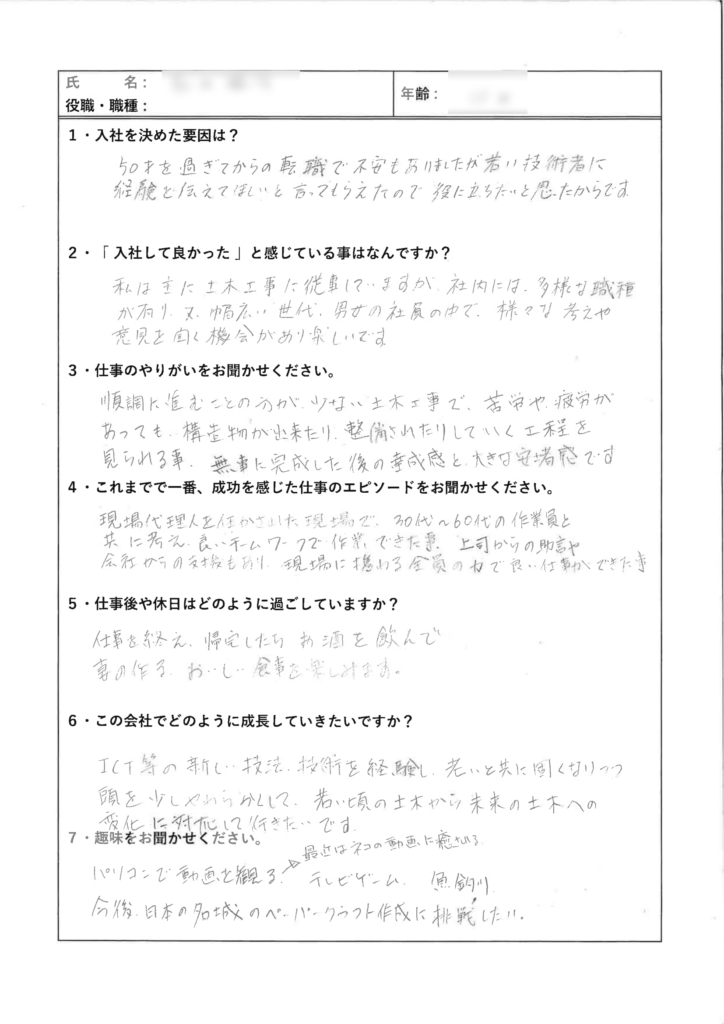 氏　名：
年齢：
役職・職種：
1・入社を決めた要因は？
50才を過ぎてからの転職で不安もありましたが若い技術者に
経験を伝えてほしいと言ってもらえたので役に立ちたいと思ったからです
2・「 入社して良かった 」と感じている事はなんですか？
私は主に土木工事に従事していますが、社内には、多様な職種
が有り、又、幅広い世代、男女の社員の中で、様々な考えや
意見を聞く機会があり楽しいです
3・仕事のやりがいをお聞かせください。
順調に進むことの方が、少ない土木工事で、苦労や、疲労が
あっても、構造物が出来たり、整備されたりしていく工程を
見られる事、無事に完成した後の達成感と、大きな安堵感です
4・これまでで一番、成功を感じた仕事のエピソードをお聞かせください。
現場代理人を任かされた現場で、30代～60代の作業員と
共に考え、良いチームワークで作業できた事、上司からの助言や
会社からの支援もあり、現場に携わる全員の力で良い仕事ができた事
5・仕事後や休日はどのように過ごしていますか？
仕事を終え、帰宅したらお酒を飲んで
妻の作る、おいしい食事を楽しみます。
6・この会社でどのように成長していきたいですか？
ICT等の新しい技法、技術を経験し、老いと共に固くなりつつ
頭を少しやわらかくして、若い頃の土木から未来の土木への
変化に対応して行きたいです
7・趣味をお聞かせください。
最近はネコの動画に癒される
パソコンで動画を観る、テレビゲーム、魚釣り
今後、日本の名城のペーパークラフト作成に挑戦したい。